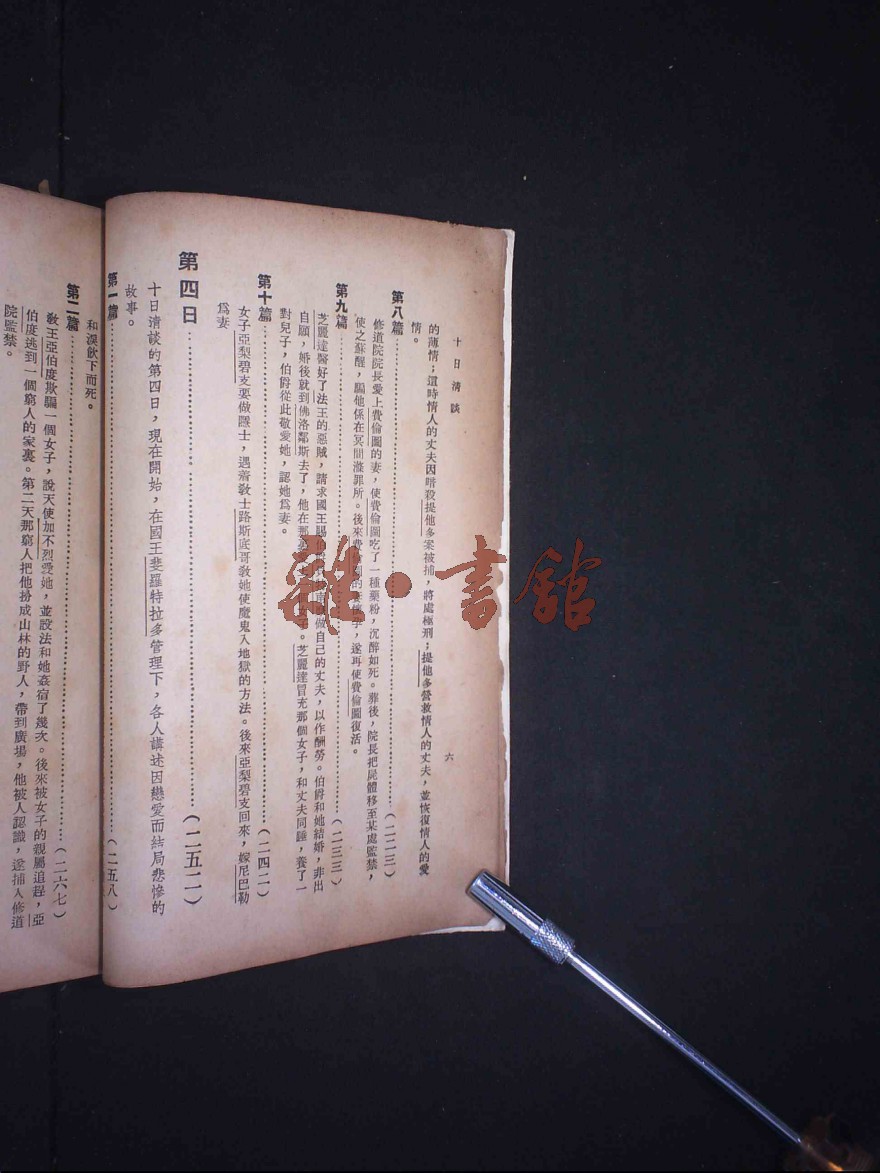 十日清談
六
的薄情；這時情人的丈夫因暗殺提他多案被捕，將處極刑；提他多營救情人的丈夫，並恢復情人的愛
情。
第八篇……(二二三)
修道院院長愛上費倫圖的妻，使費倫圖吃了一種藥粉，沉醉如死。葬後，院長把屍體移至某處監禁，
使之蘇醒，騙他係在冥間滌罪所。後來費倫圖的妻懷孕，遂再使費倫圖復活。
第九篇……(二三三)
芝麗達醫好了法王的惡賊，請求國王賜伯 做自己的丈夫，以作酬勞。伯爵和她結婚，非出
自願，婚後就到佛洛鄰斯去了，他在那 女子。芝麗達冒充那個女子，和丈夫同睡，養了一
對兒子，伯爵從此敬愛她，認她爲妻。
第十篇……(二四二)
女子亞梨碧支要做隱士，遇着敎士路斯底哥敎她使魔鬼入地獄的方法。後來亞梨碧支回來，嫁尼巴勒
爲妻
第四日……(二五二)
十日清談的第四日，現在開始，在國王斐羅特拉多管理下，各人講述因戀愛而結局悲慘的
故事。
第一篇……(二五八)
和淚飲下而死。
第二篇……(二六七)
敎王亞伯度欺騙一個女子，說天使加不烈愛她，並設法和她姦宿了幾次。後來被女子的親屬追趕，亞
伯度逃到一個窮人的家裏。第二天那窮人把他扮成山林的野人，帶到廣場，他被人認識，遂捕人修道
院監禁。
雜·書館